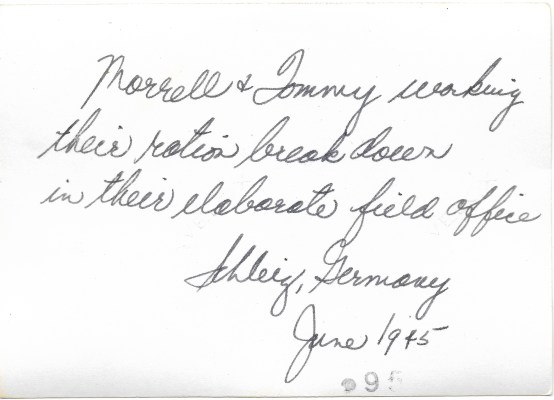 Morrell & Tommy working
their ration break down
in their elaborate field office
Schleiz, Germany
June 1945
95